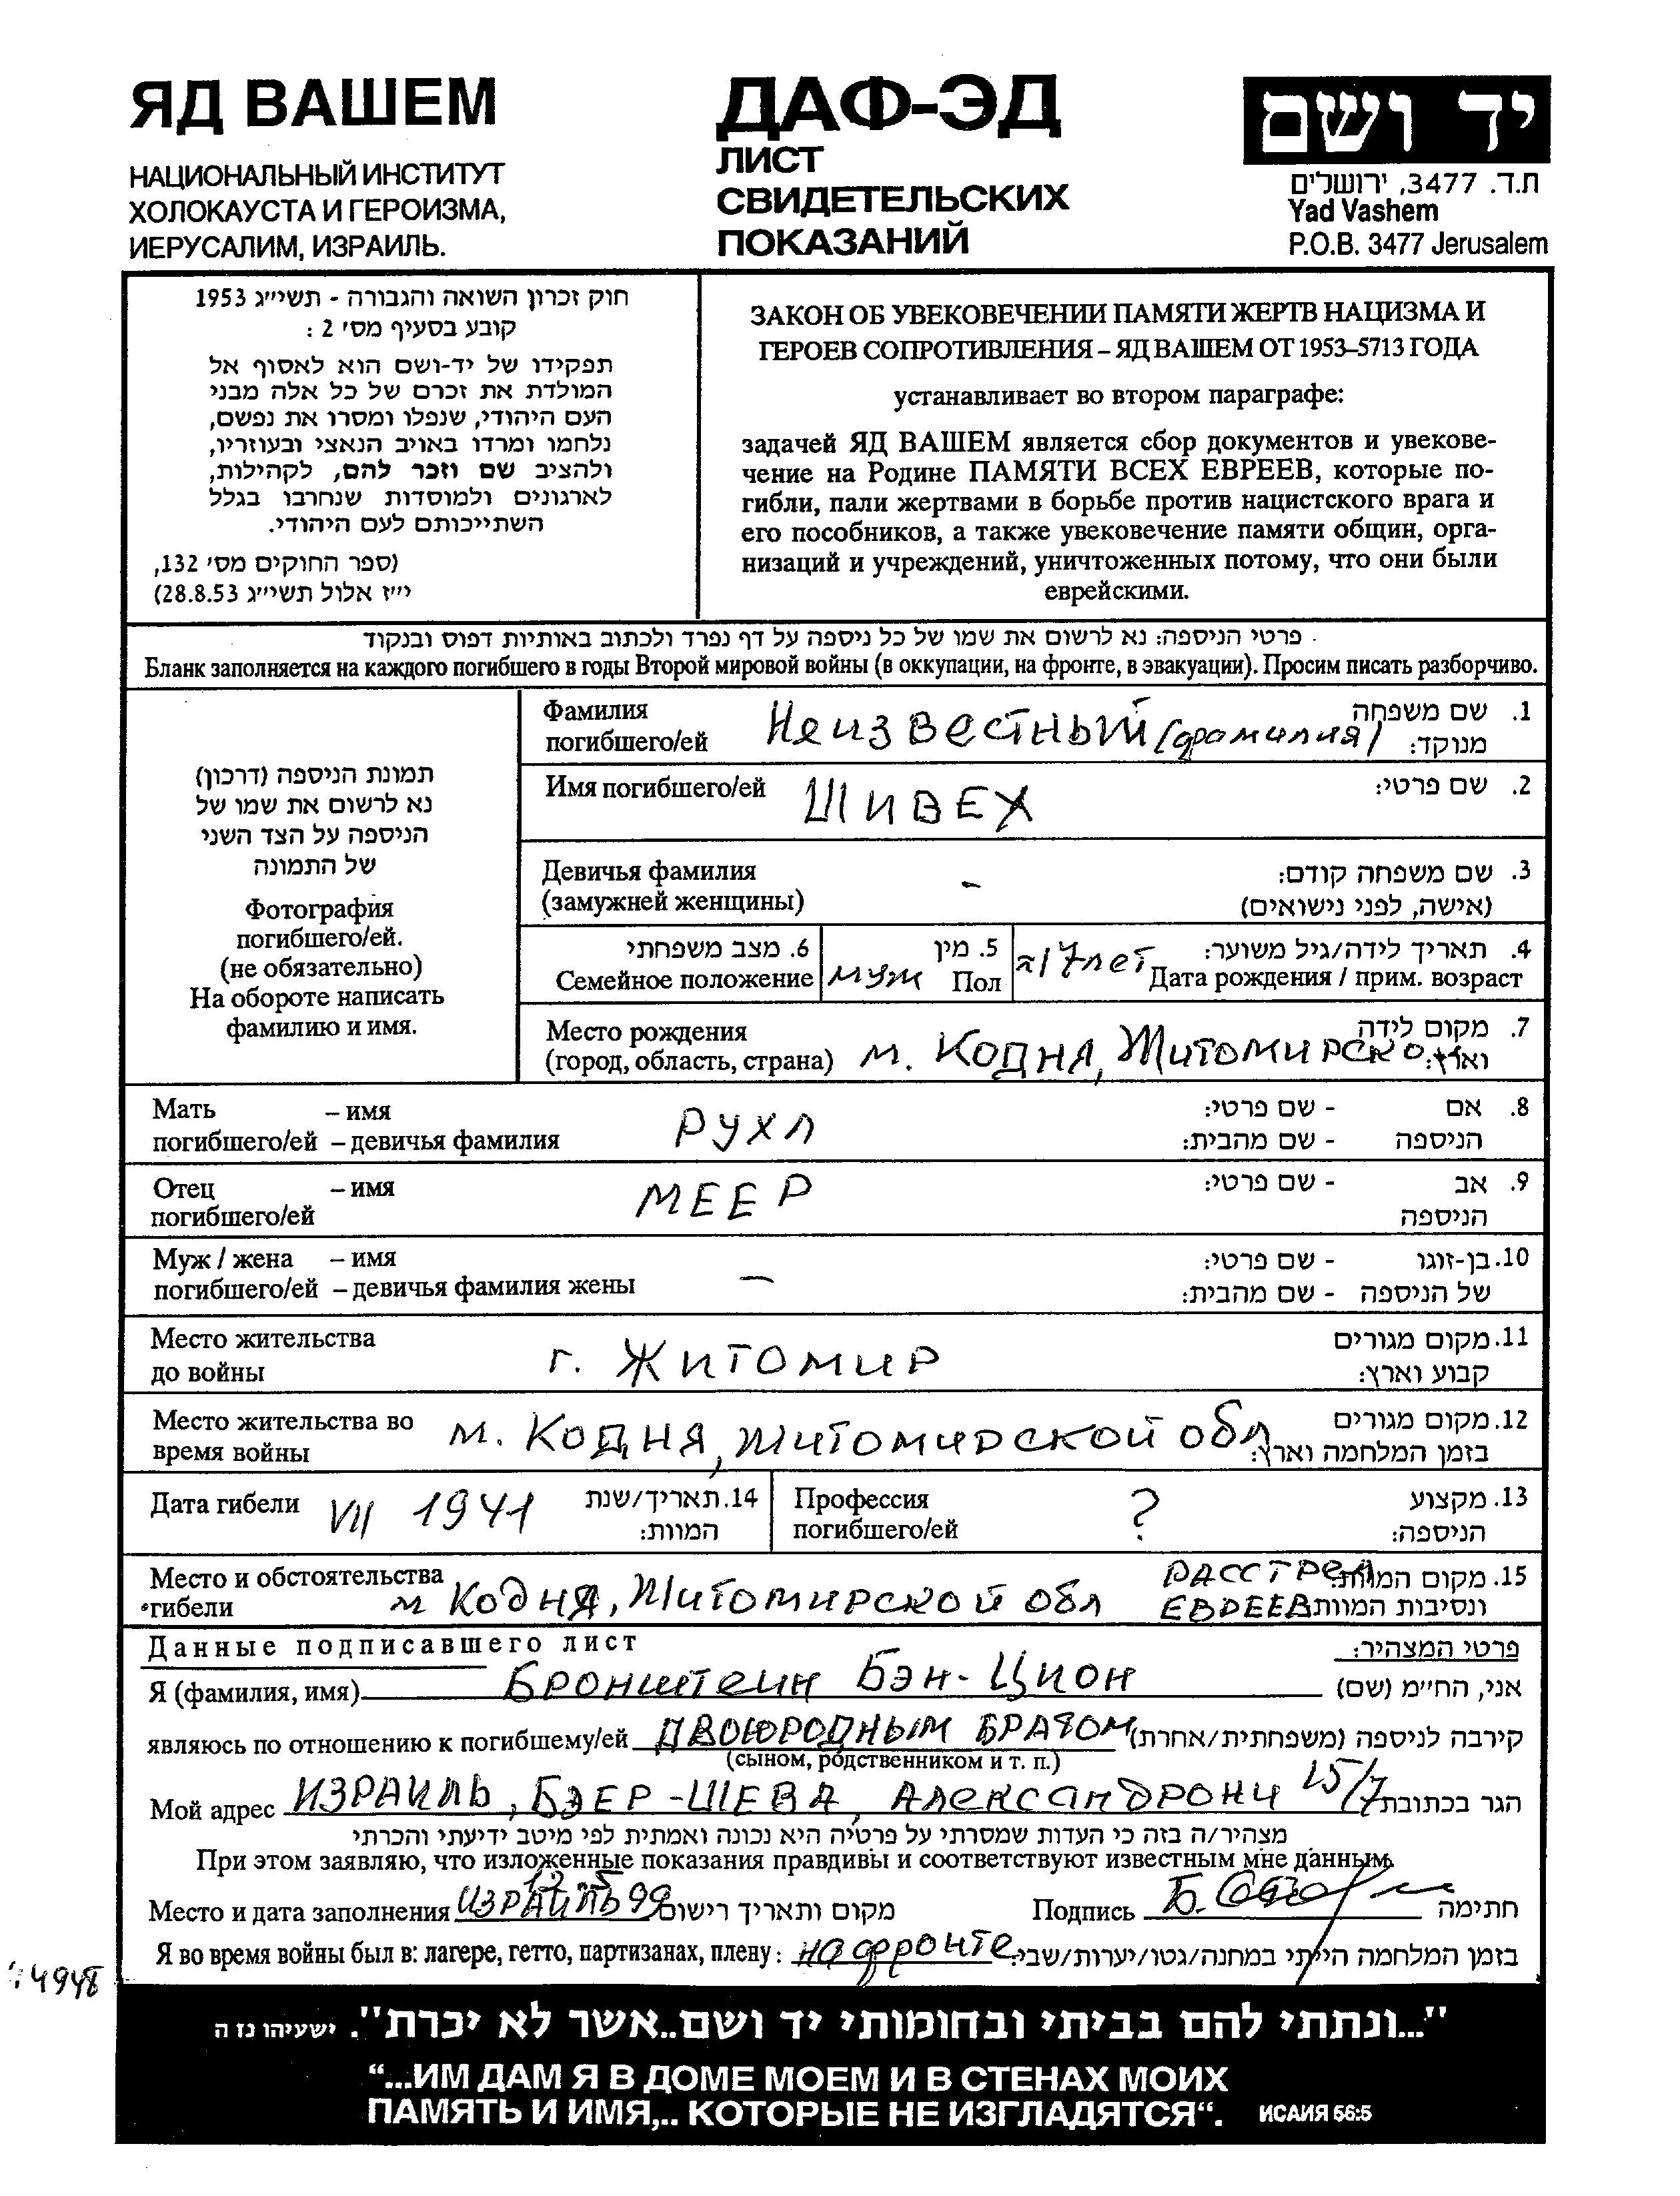 ЯД ВАШЕМ
НАЦИОНАЛЬНЫЙ ИНСТИТУТ
ХОЛОКАУСТА И ГЕРОИЗМА,
ИЕРУСАЛИМ, ИЗРАИЛЬ.
ДАФ-ЭД
ЛИСТ
СВИДЕТЕЛЬСКИХ
ПОКАЗАНИЙ
יד ושם
ת.ד. 3477, ירושלים
Yad Vashem
P.O.B. 3477 Jerusalem
חוק זכרון השואה והגבורה - תשי״ג 1953
קובע בסעיף מס׳ 2 :
תפקידו של יד-ושם הוא לאסוף אל
המולדת את זכרם של כל אלה מבני
העם היהודי, שנפלו ומסרו את נפשם,
נלחמו ומרדו באויב הנאצי ובעוזריו,
ולהציב שם וזכר להם, לקהילות,
לארגונים ולמוסדות שנחרבו בגלל
השתייכותם לעם היהודי.
(ספר החוקים מס׳ 132,
י״ז אלול תשי״ג 28.8.53)
ЗАКОН ОБ УВЕКОВЕЧЕНИИ ПАМЯТИ ЖЕРТВ НАЦИЗМА И
ГЕРОЕВ СОПРОТИВЛЕНИЯ – ЯД ВАШЕМ ОТ 1953–5713 ГОДА
устанавливает во втором параграфе:
задачей ЯД ВАШЕМ является сбор документов и увекове-
чение на Родине ПАМЯТИ ВСЕХ ЕВРЕЕВ, которые по-
гибли, пали жертвами в борьбе против нацистского врага и
его пособников, а также увековечение памяти общин, орга-
низаций и учреждений, уничтоженных потому, что они были
еврейскими.
פרטי הניספה: נא לרשום את שמו של כל ניספה על דף נפרד ולכתוב באותיות דפוס ובנקוד
Бланк заполняется на каждого погибшего в годы Второй мировой войны (в оккупации, на фронте, в эвакуации). Просим писать разборчиво.
תמונת הניספה (דרכון)
נא לרשום את שמו של
הניספה על הצד השני
של התמונה
Фотография
погибшего/ей.
(не обязательно)
На обороте написать
фамилию и имя.
Фамилия Неизвестный (фамилия) 1. שם משפחה
погибшего/ей מנוקד:
Имя погибшего/ей ШИВЕХ 2. שם פרטי:
Девичья фамилия - 3. שם משפחה קודם:
(замужней женщины) (אישה, לפני נישואים)
6. מצב משפחתי 5. מין 4. תאריך לידה/גיל משוער:
Семейное положение муж Пол ≈17 лет Дата рождения / прим. возраст
Место рождения 7. מקום לידה
(город, область, страна) м. Кодня, Житомирско וארץ:
Мать – имя РУХЛ 8. אם - שם פרטי:
погибшего/ей – девичья фамилия הניספה - שם מהבית:
Отец – имя МЕЕР 9. אב - שם פרטי:
погибшего/ей הניספה
Муж / жена – имя 10. בן-זוגו - שם פרטי:
погибшего/ей – девичья фамилия жены — של הניספה - שם מהבית:
Место жительства 11. מקום מגורים
до войны г. ЖИТОМИР קבוע וארץ:
Место жительства во м. Кодня, Житомирской обл 12. מקום מגורים
время войны בזמן המלחמה וארץ:
Дата гибели VII 1941 14. תאריך/שנת
המוות:
Профессия ? 13. מקצוע
погибшего/ей הניספה:
Место и обстоятельства РАССТРЕЛ 15. מקום המוות
гибели м Кодня, Житомирской обл ЕВРЕЕВ ונסיבות המוות
Данные подписавшего лист פרטי המצהיר:
Я (фамилия, имя) Бронштейн Бэн-Цион אני, החי״מ (שם)
являюсь по отношению к погибшему/ей ДВОЮРОДНЫМ БРАТОМ קירבה לניספה (משפחתית/אחרת)
(сыном, родственником и т. п.)
Мой адрес ИЗРАИЛЬ, БЭЕР-ШЕВА, АЛЕКСАНДРОНИ 15/7 הגר בכתובת
מצהיר/ה בזה כי העדות שמסרתי על פרטיה היא נכונה ואמתית לפי מיטב ידיעתי והכרתי
При этом заявляю, что изложенные показания правдивы и соответствуют известным мне данным.
Место и дата заполнения ИЗРАИЛЬ 99 מקום ותאריך רישום Подпись חתימה
Я во время войны был в: лагере, гетто, партизанах, плену: на фронте בזמן המלחמה הייתי במחנה/גטו/יערות/שבי:
4948
"...ונתתי להם בביתי ובחומותי יד ושם..אשר לא יכרת". ישעיהו נז ה
“...ИМ ДАМ Я В ДОМЕ МОЕМ И В СТЕНАХ МОИХ
ПАМЯТЬ И ИМЯ,.. КОТОРЫЕ НЕ ИЗГЛАДЯТСЯ“. ИСАИЯ 56:5